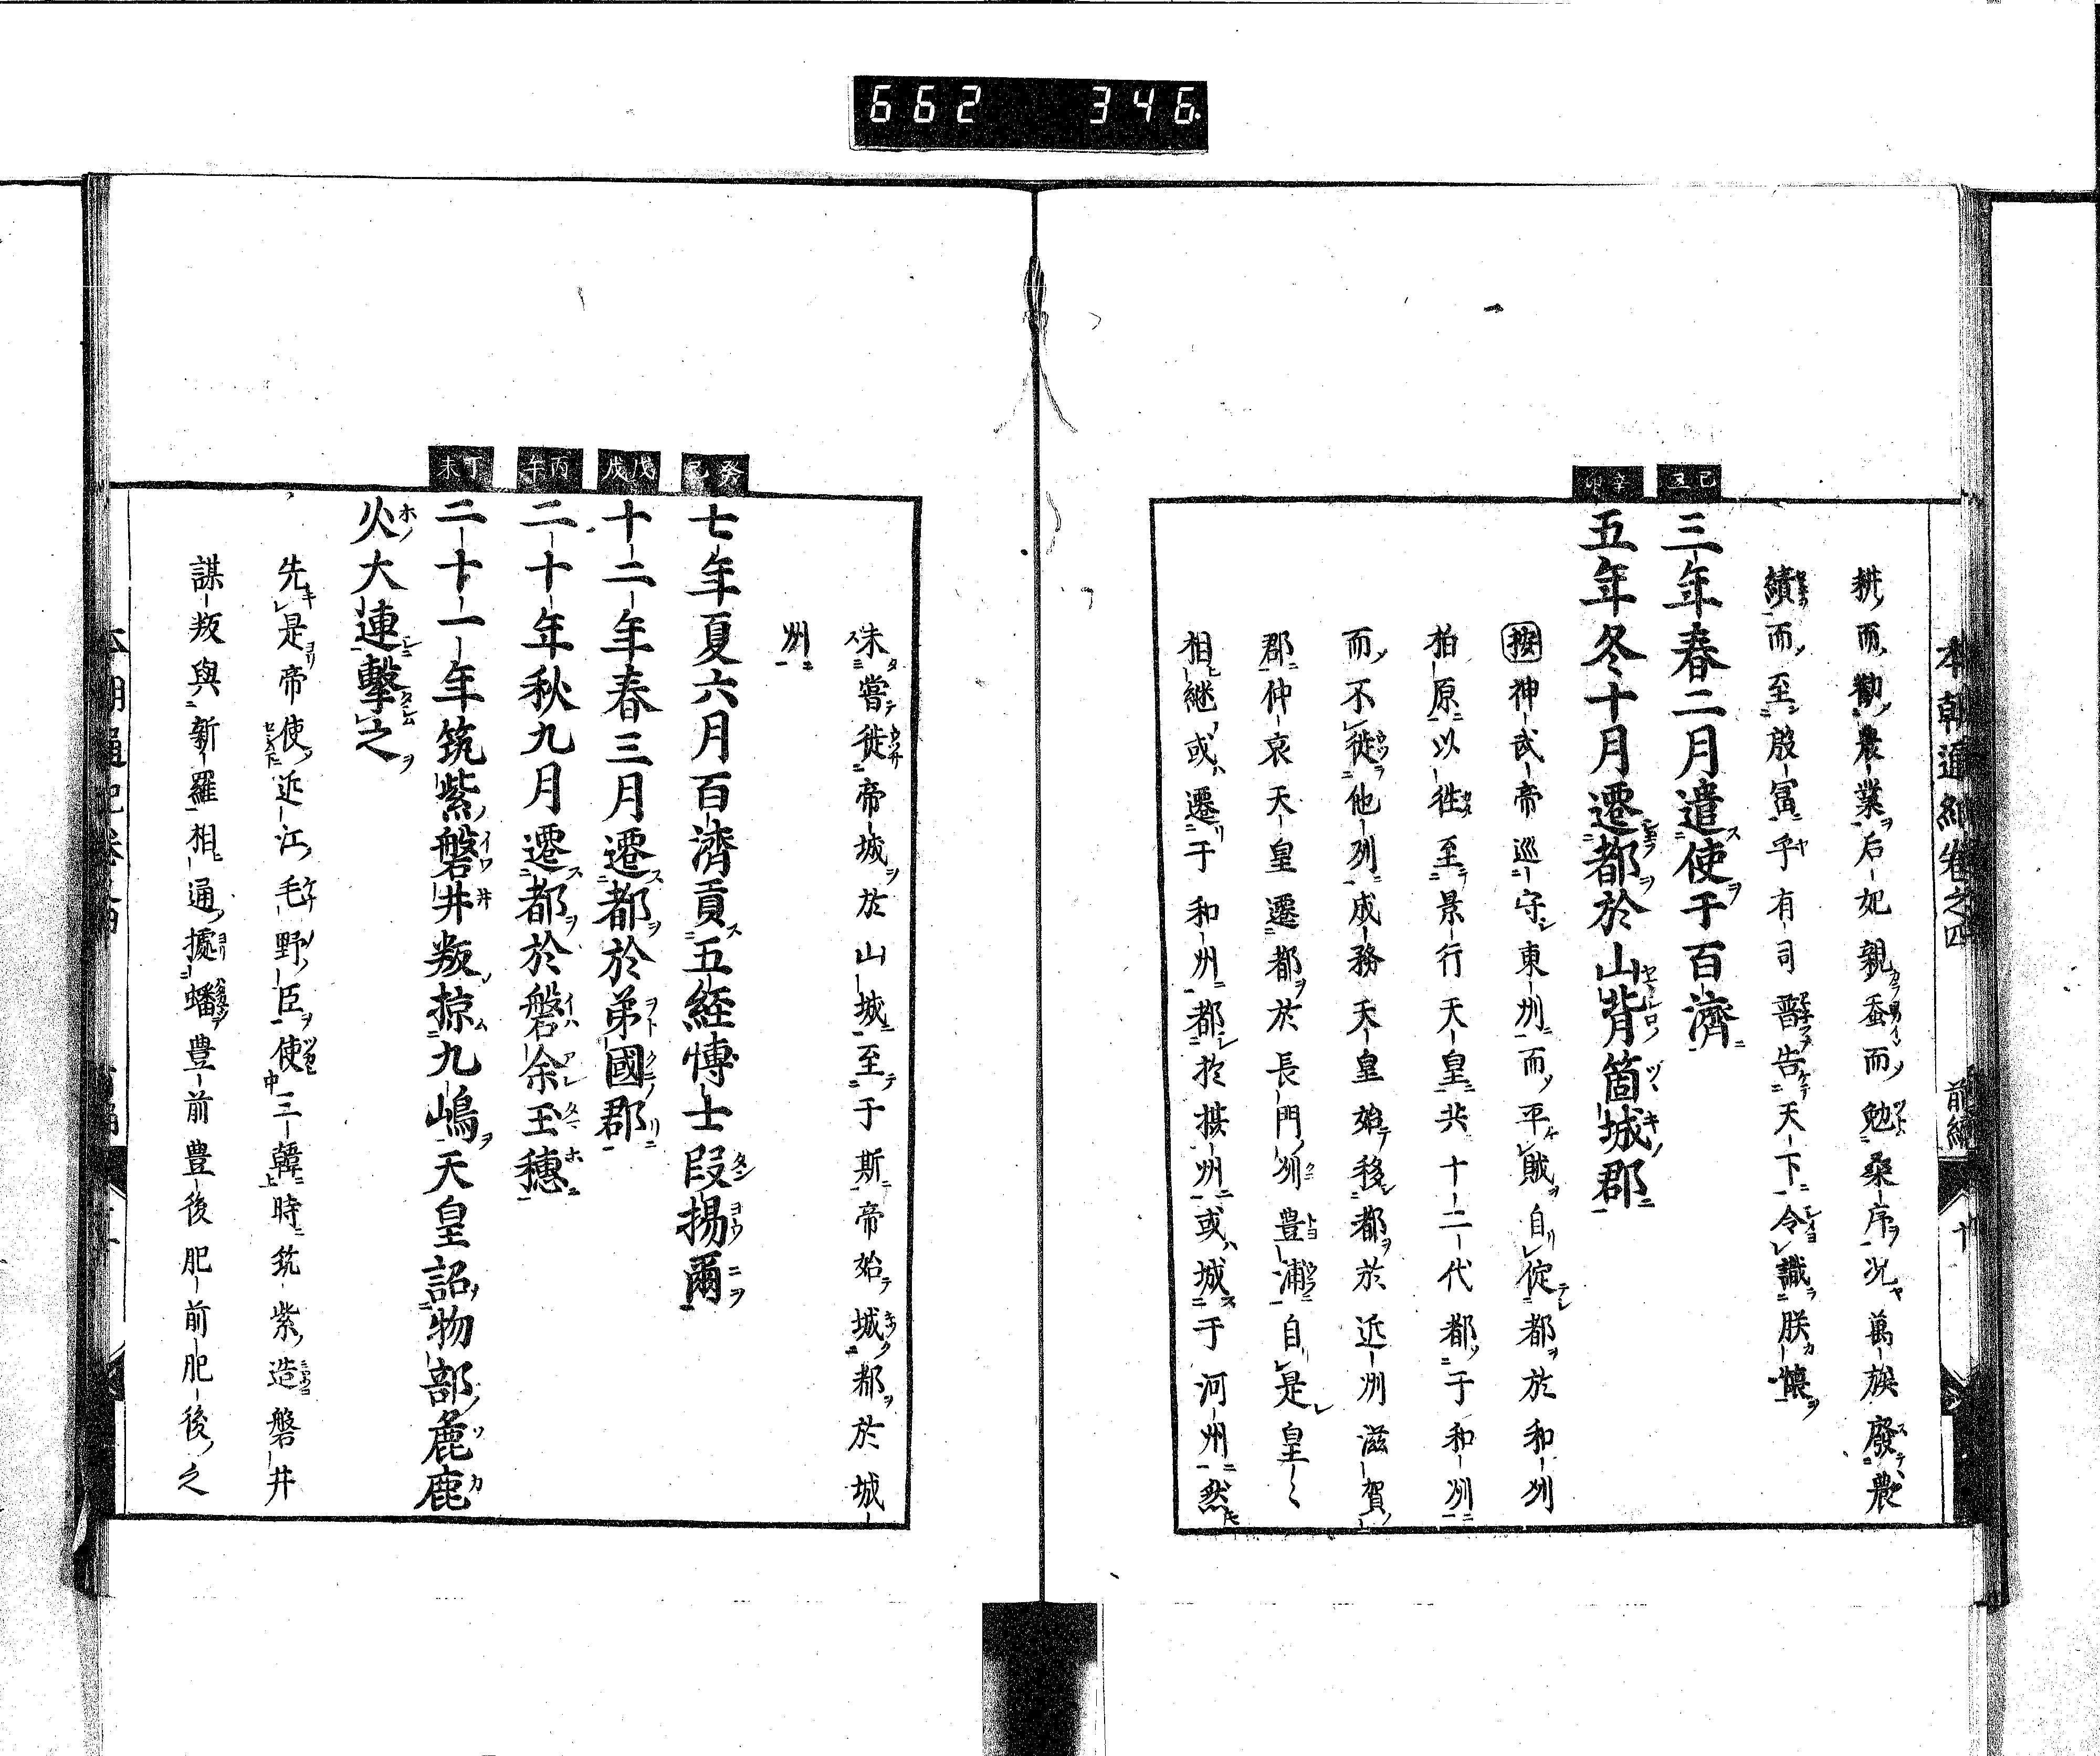 662 346
本朝通紀卷之四 前編 十
耕而勸農業后妃親蚕而勉桑序况萬族廢農
績而至殷富乎有司普告天下令識朕懷
己丑
三年春二月遣使于百濟
辛卯
五年冬十月遷都於山背箇城郡
按神武帝巡守東州而平賊自定都於和州
柏原以徃至景行天皇共十二代都于和州
而不徙他州成務天皇始移都於近州滋賀
郡仲哀天皇遷都於長門州豊浦自是皇〻
相継或遷于和州都於摂州或城于河州然
未嘗徙帝城於山城至于斯帝始城都於城
州
癸巳
七年夏六月百濟貢五経博士段揚爾
戊戌
十二年春三月遷都於弟國郡
丙午
二十年秋九月遷都於磐余玉穗
丁未
二十一年筑紫磐井叛掠九嶋天皇詔物部麁鹿
火大連擊之
先是帝使近江毛野臣使三韓時筑紫造磐井
謀叛與新羅相通據蟠豊前豊後肥前肥後之
本朝通紀卷之四